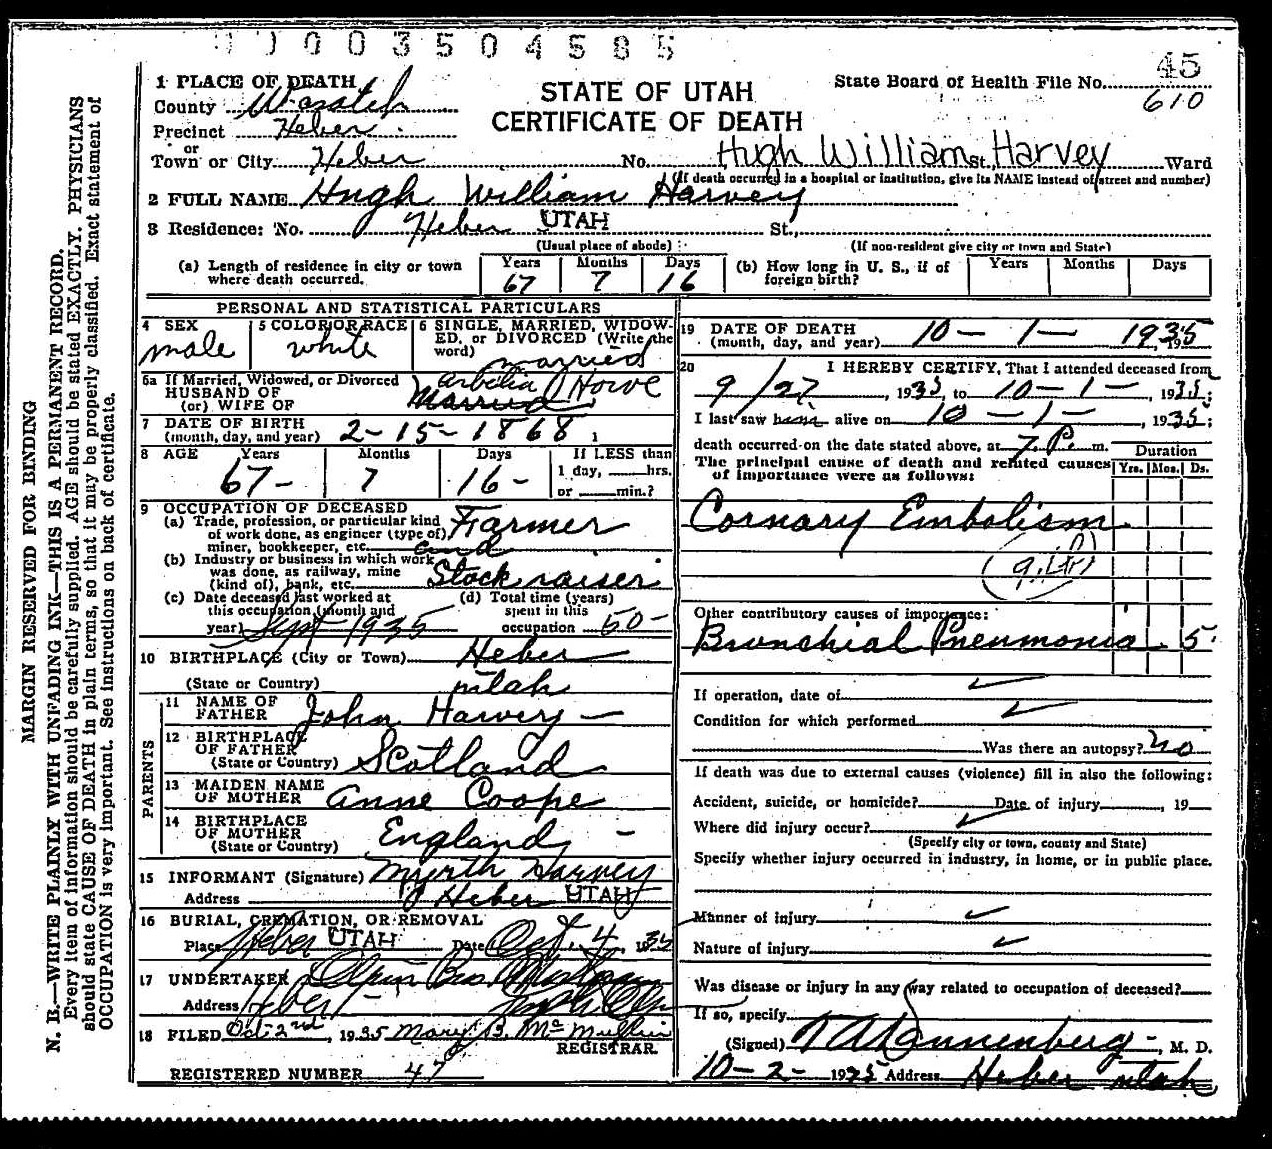 0003504585
45
1 PLACE OF DEATH
STATE OF UTAH
State Board of Health File No.
County Wasatch
610
CERTIFICATE OF DEATH
Precinct Heber
or
Town or City Heber No. Hugh William St. Harvey Ward
(If death occurred in a hospital or institution, give its NAME instead of street and number)
2 FULL NAME Hugh William Harvey
3 Residence: No. Heber UTAH St.,
(Usual place of abode) (If non-resident give city or town and State)
(a) Length of residence in city or town where death occurred. Years 67 Months 7 Days 16
(b) How long in U. S., if of foreign birth? Years Months Days
PERSONAL AND STATISTICAL PARTICULARS
4 SEX male
5 COLOR OR RACE white
6 SINGLE, MARRIED, WIDOWED, or DIVORCED (Write the word) married
6a If Married, Widowed, or Divorced
HUSBAND OF Arbelia Howe
(or) WIFE OF Married
7 DATE OF BIRTH
(month, day, and year) 2-15-1868 1
8 AGE Years 67- Months 7 Days 16-
If LESS than
1 day, hrs.
or min.?
9 OCCUPATION OF DECEASED
(a) Trade, profession, or particular kind
of work done, as engineer (type of),
miner, bookkeeper, etc. Farmer and
(b) Industry or business in which work
was done, as railway, mine
(kind of), bank, etc. Stock raiser
(c) Date deceased last worked at
this occupation (month and
year) Sept 1935
(d) Total time (years)
spent in this
occupation 50-
10 BIRTHPLACE (City or Town) Heber
(State or Country) utah
PARENTS
11 NAME OF
FATHER John Harvey -
12 BIRTHPLACE
OF FATHER
(State or Country) Scotland
13 MAIDEN NAME
OF MOTHER Anne Coope
14 BIRTHPLACE
OF MOTHER
(State or Country) England -
15 INFORMANT (Signature) Myrth Harvey
Address Heber UTAH
16 BURIAL, CREMATION, OR REMOVAL
Place Heber UTAH Date Oct. 4, 1935
17 UNDERTAKER Olpin Bros
Address Heber
18 FILED Oct 2nd, 1935 Mary B. McMullin
REGISTRAR
REGISTERED NUMBER 47
19 DATE OF DEATH
(month, day, and year) 10-1-1935
20 I HEREBY CERTIFY, That I attended deceased from
9/27, 1935, to 10-1-, 1935;
I last saw him alive on 10-1-, 1935;
death occurred on the date stated above, at 7 P. m.
The principal cause of death and related causes
of importance were as follows:
Duration
Yrs. Mos. Ds.
Cornary Embolism
Other contributory causes of importance:
Bronchial Pneumonia 5
If operation, date of
Condition for which performed
Was there an autopsy? no
If death was due to external causes (violence) fill in also the following:
Accident, suicide, or homicide? Date of injury , 19
Where did injury occur?
(Specify city or town, county and State)
Specify whether injury occurred in industry, in home, or in public place.
Manner of injury
Nature of injury
Was disease or injury in any way related to occupation of deceased?
If so, specify
(Signed) Dannenberg -, M. D.
10-2-1935 Address Heber utah
MARGIN RESERVED FOR BINDING
N. B.—WRITE PLAINLY WITH UNFADING INK—THIS IS A PERMANENT RECORD.
Every item of information should be carefully supplied. AGE should be stated EXACTLY. PHYSICIANS
should state CAUSE OF DEATH in plain terms, so that it may be properly classified. Exact statement of
OCCUPATION is very important. See instructions on back of certificate.